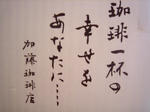 珈琲一杯の
幸せを
あなたに…
加藤珈琲店